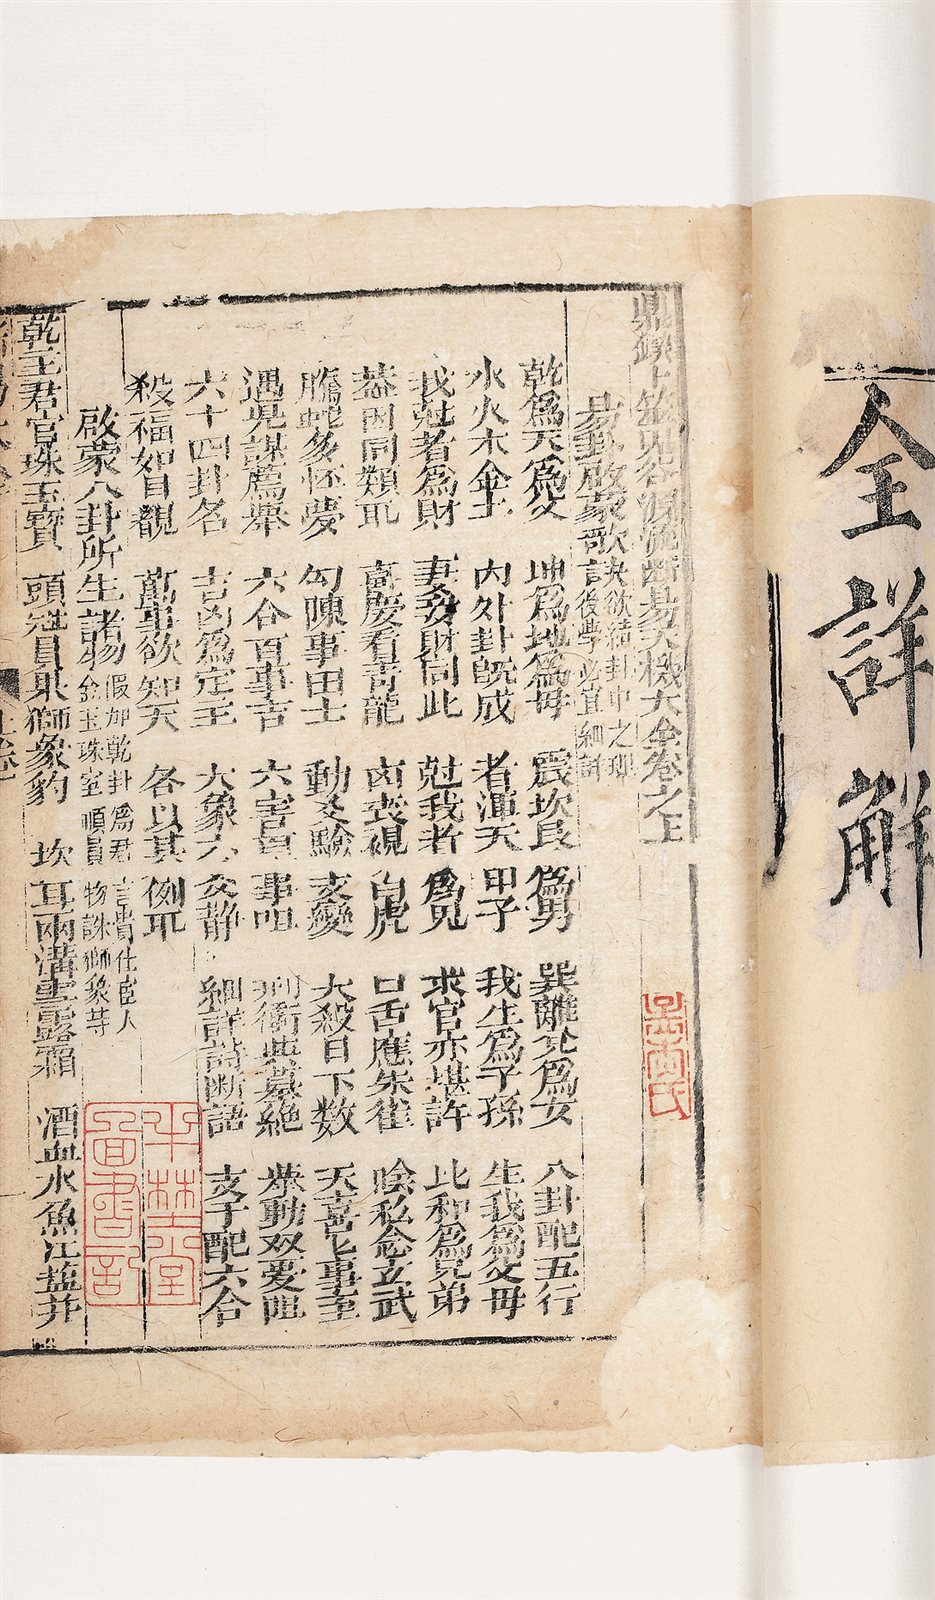 全詳解
鼎鍥卜筮鬼谷源流断易天機大全卷之上
易卦啟蒙歌訣欲績卦中之理言後學必宜細詳
乾為天為父 坤為地為母 震坎艮為男 巽離兌為女 八卦配五行
水火木金土 內外卦旣成 者渾天甲子 我生為子孫 生我為父毋
我尅者為財 妻妾財同此 尅我者為鬼 求官亦堪許 比和為兄弟
葢因同類耳 喜慶看青龍 凶喪視白虎 口舌應朱雀 隂私念玄武
螣蛇多怪夢 勾陳事田土 動爻驗支變 大殺日下数 天喜 事至
遇 謀薦舉 六合百事吉 六害 事咀 刑衝與墓絶 動双憂阻
六十四卦名 吉凶為定主 大象六爻静 細詳詩断語 支干配六合
殺福如目覩 萬事欲知天 各以其例耶
啟蒙八卦所生諸物假如乾卦為君言貴仕宦人金玉珠寶順員物誅獅象等
乾主君官珠玉寶 頭冠員果獅象豹 坎耳兩溝雲露霜 酒血水魚江盐井